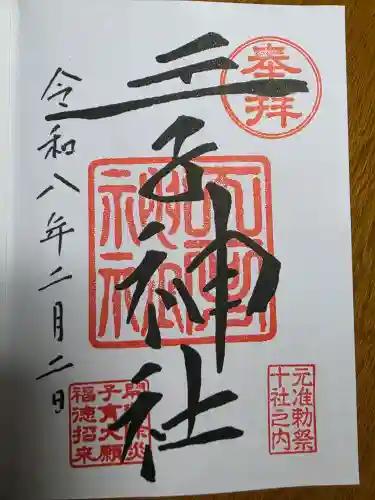 奉拝
王子神社
令和八年二月二日
元准勅祭
十社之内
開運除災
子育大願
福徳招来